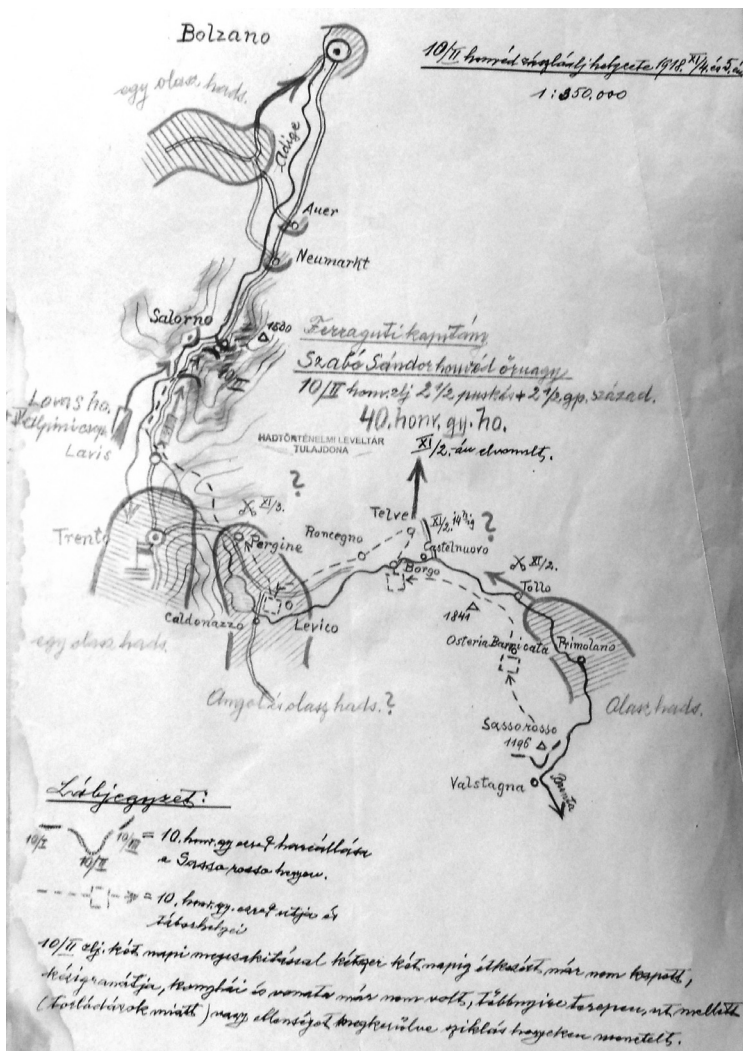 Bolzano
10/II. honvéd zászlóalj helyzete 1918. XI/4. és 5. én
1:350.000
egy olasz hads.
Adige
Auer
Neumarkt
Salorno
1500
10/II
Ferraguti kapitány
Szabó Sándor honvéd őrnagy
10/II honv. zlj 2 1/2 puskás + 2 1/2 gp. század.
40. honv. gy. ho.
XI/2. án elvonult.
HADTÖRTÉNELMI LEVÉLTÁR
TULAJDONA
Lovas ho.
Alpini csop.
Lavis
Trento
XI/3.
?
Pergine
Roncegno
Telve
XI/2. 14h ig
?
Castelnuovo
Borgo
XI/2.
Tollo
Caldonazzo
Levico
1841
Osteria Barricata
Primolano
egy olasz hads.
Angol és olasz hads. ?
Olasz hads.
Sasso rosso
1196
Valstagna
Brenta
Lábjegyzet:
10/I 10/II 10/III = 10. honv. gy. ezred harcállása
a Sasso rosso hegyen.
= 10. honv. gy. ezred útja és
táborhelyei
10/II zlj. két napi megszakítással kétszer két napig étkezést már nem kapott,
kézigránátja, konyhái és vonata már nem volt, többnyire terepen, út mellett
(torlódások miatt) vagy ellenséget megkerülve sziklás hegyeken menetelt.